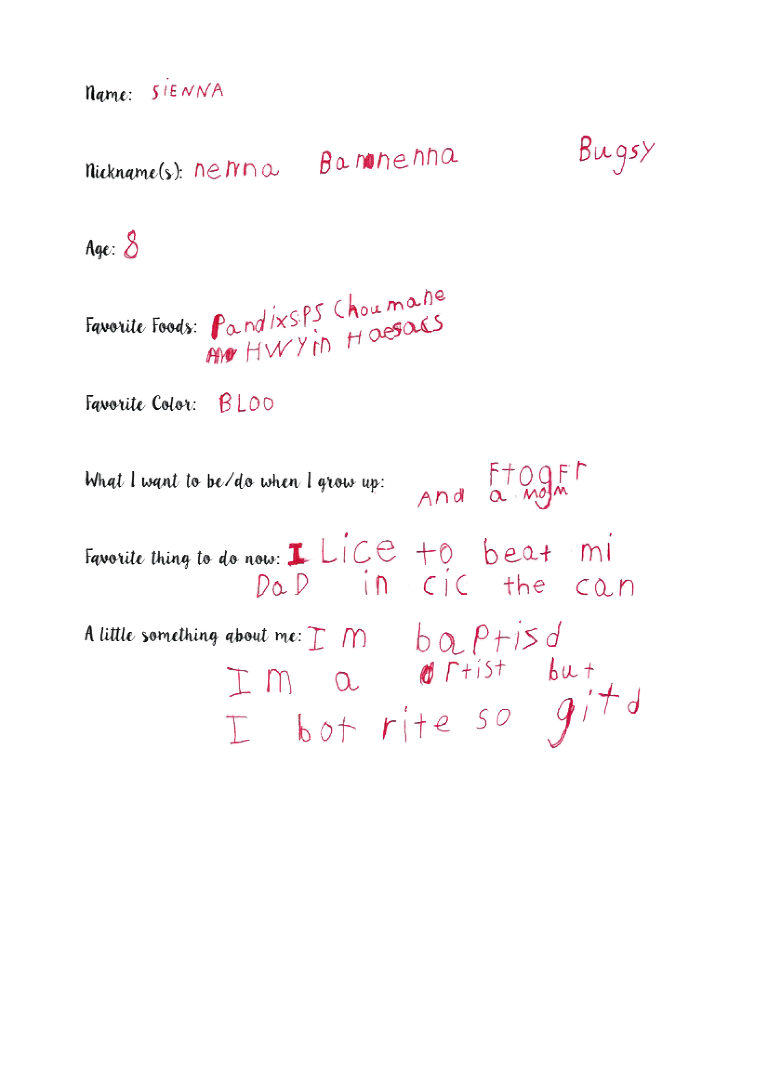 Name: SiENNA
Nickname(s): nenna Bamnenna Bugsy
Age: 8
Favorite Foods: Pandixsps Choumane
HWYin Haesacs
Favorite Color: BLOO
What I want to be/do when I grow up: FtogFr
And a mom
Favorite thing to do now: I Lice to beat mi
DaD in cic the can
A little something about me: I m baptisd
I m a artist but
I bot rite so gitd